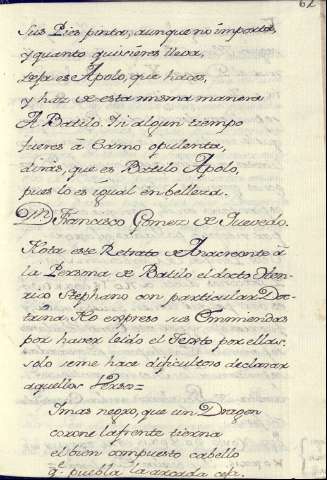 62
Sus Pies pintas, aunque no importa,
y quanto quisieres lleva,
pues es Apolo, que haces,
y haz de esta misma manera
A Batilo. Si algun tiempo
fueres à Samo opulenta,
dirás, que es Batilo Apolo,
pues lo es igual en belleza.
Dn Francisco Gomez de Quevedo.
Nota este Retrato de Anacreonte à
la Persona de Batilo el docto Hen-
rico Stephano con particular Doc-
trina. No expreso sus Enmiendas
por haver leído el Texto por ellas.
solo se me hace dificultoso declarar
aquellos Versos=
I mas negro, que un Dragon
corone la frente tierna
el bien compuesto cabello
q.e puebla la arcada ceja.